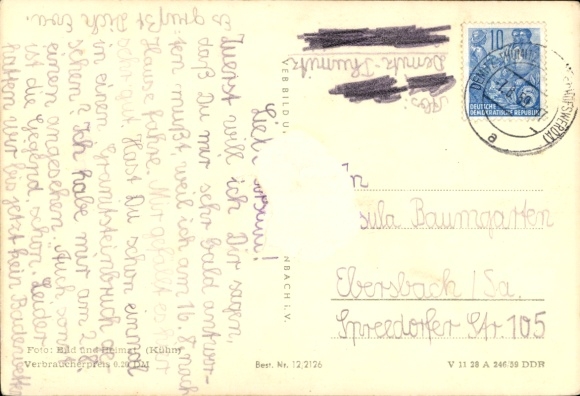 Liebe Ursula!
Zuerst will ich Dir sagen,
daß Du mir sehr bald antwor-
ten mußt, weil ich am 16.8. nach
Hause fahre. Mir gefällt es hier
sehr gut. Hast Du schon einmal
in einem Granitsteinbruch ge-
sehen? Ich habe mir am 2.8.
einen angesehen. Auch sonst
ist die Gegend schön. Leider
hatten wir bis jetzt kein Badewetter
Es grüßt Dich
Abs.:
Demitz-Thumitz
VEB BILD U.
NBACH i. V.
10
DEUTSCHE
DEMOKRATISCHE REPUBLIK
DEMITZ-THUMITZ
a
sula Baumgarten
Ebersbach / Sa.
Spreedorfer Str. 105
Foto: Bild und Heimat (Kühn)
Verbraucherpreis 0,20 DM
Best. Nr. 12,2126
V 11 28 A 246/59 DDR